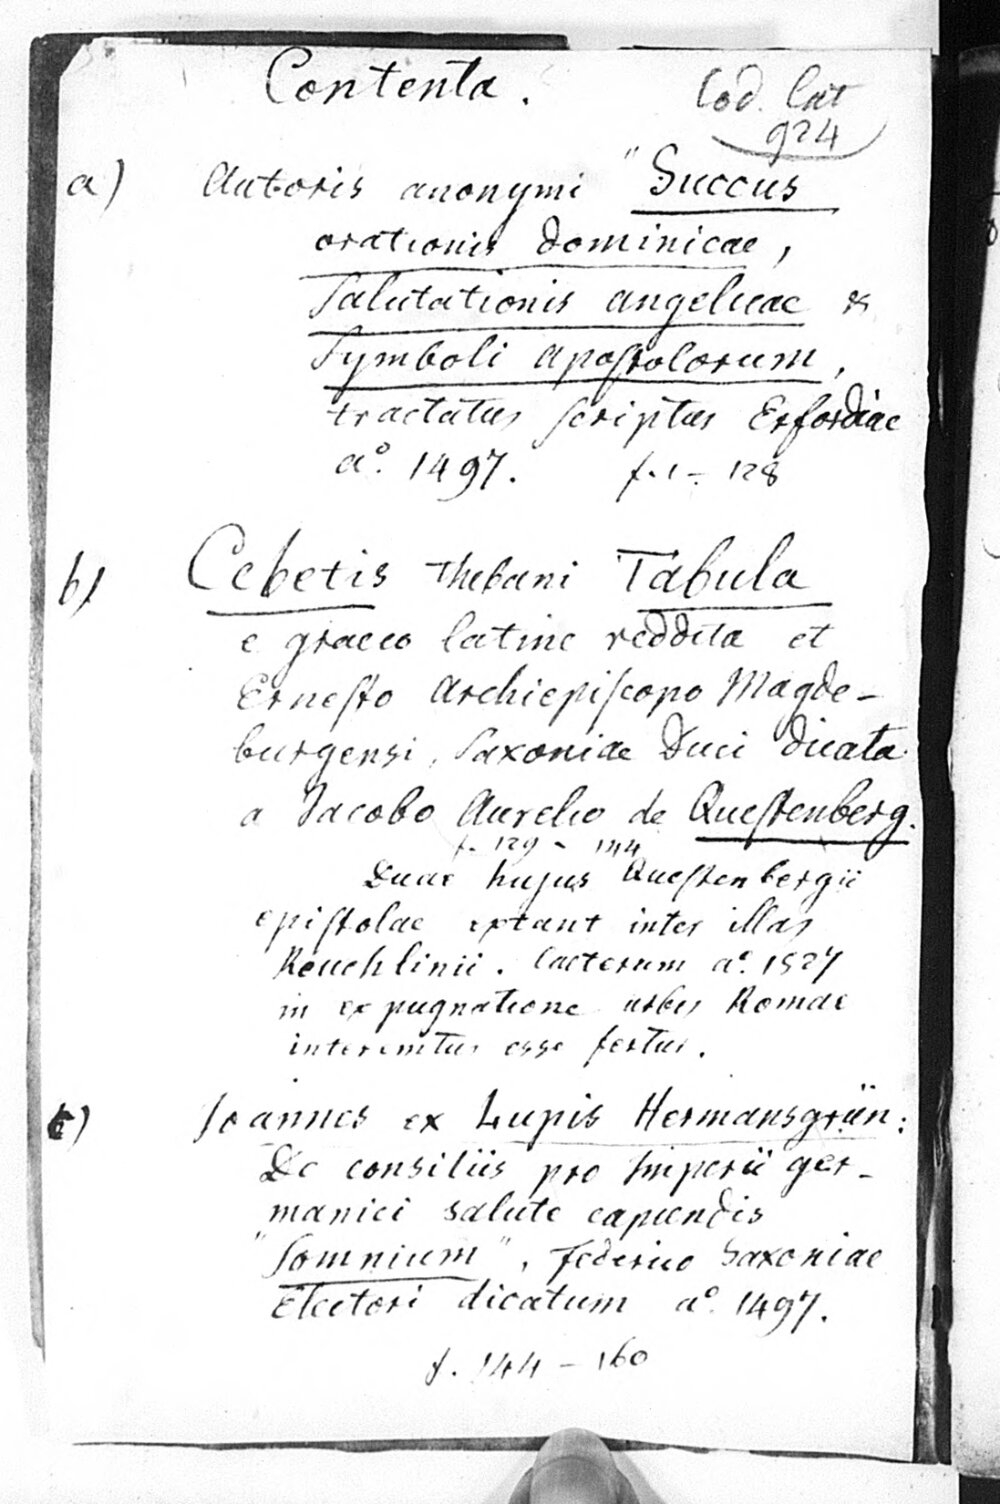 Contenta.
Cod. Lat
924
a) Autoris anonymi "Succus
orationis dominicae,
Salutationis angelicae &
Symboli apostolorum,
tractatus scriptus Erfordiae
a°. 1497. f. 1 - 128
b) Cebetis Thebani Tabula
e graeco latine reddita et
Ernesto Archiepiscopo Magde-
burgensi, Saxoniae Duci dicata
a Jacobo Aurelio de Questenberg.
f. 129 - 144
Duae hujus Questenbergii
epistolae extant inter illas
Reuchlinii. Caeterum a°. 1527
in expugnatione urbis Romae
interemtus esse fertur.
c) Joannes ex Lupis Hermansgrün:
De consiliis pro Imperii ger-
manici salute capiendis
"Somnium", Federico Saxoniae
Electori dicatum a°. 1497.
f. 144 - 160